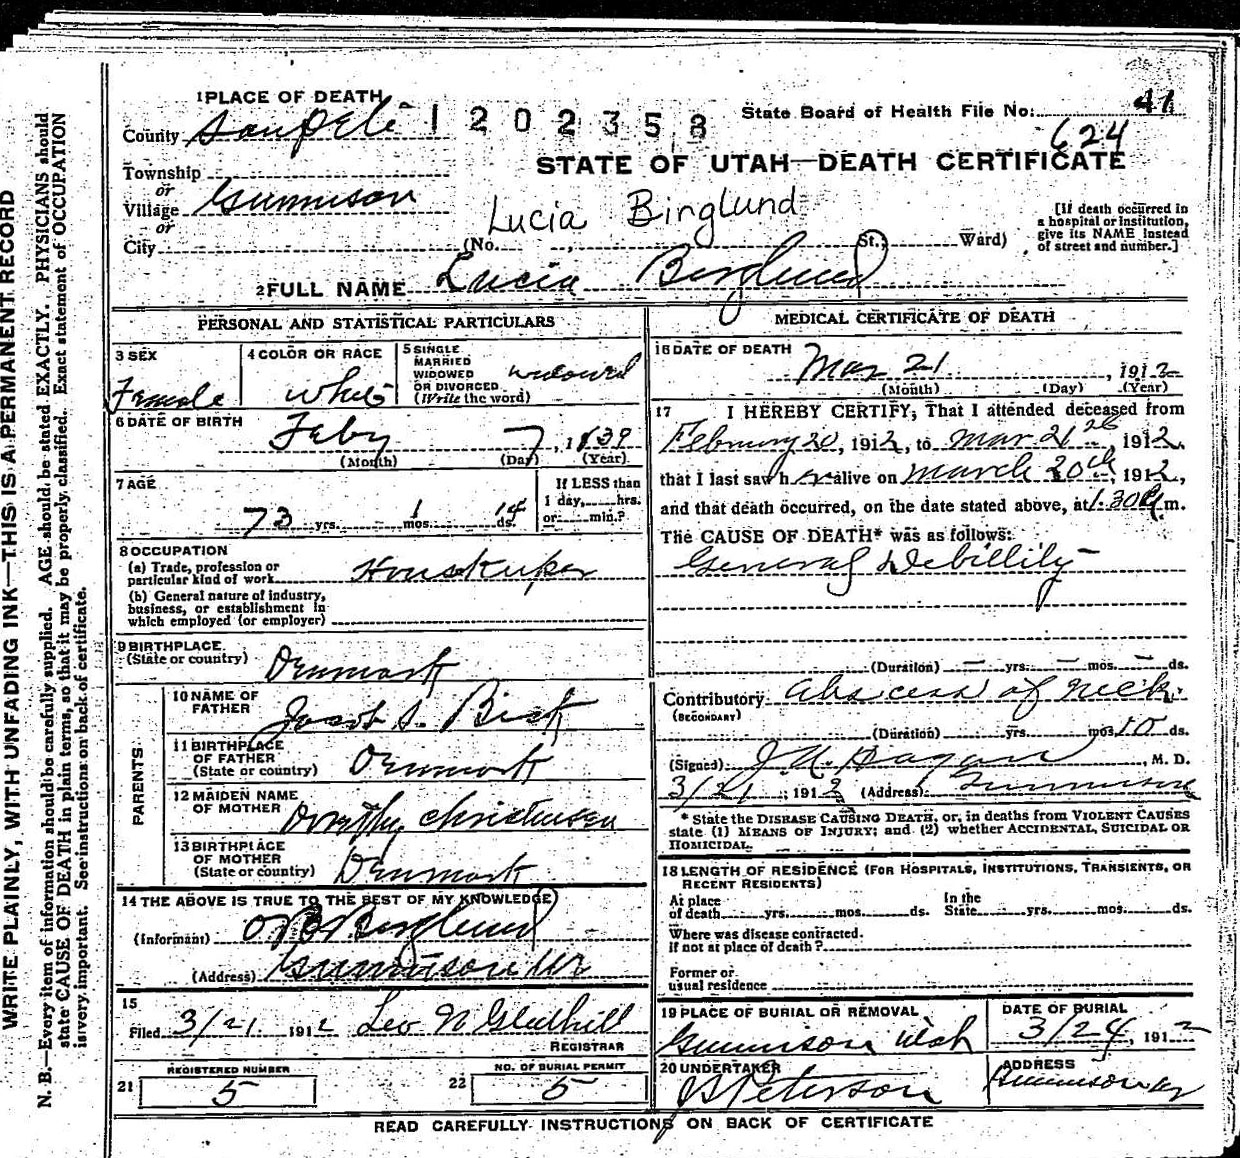 WRITE PLAINLY, WITH UNFADING INK—THIS IS A PERMANENT RECORD
N. B.—Every item of information should be carefully supplied. AGE should be stated EXACTLY. PHYSICIANS should
state CAUSE OF DEATH in plain terms, so that it may be properly classified. Exact statement of OCCUPATION
is very important. See instructions on back of certificate.
1 PLACE OF DEATH
County Sanpete
1202358
State Board of Health File No. 41
624
STATE OF UTAH—DEATH CERTIFICATE
Township
or
Village Gunnison
or
City (No. , St., Ward)
Lucia Birglund
[If death occurred in
a hospital or institution,
give its NAME instead
of street and number.]
2 FULL NAME Lucia Berglund
PERSONAL AND STATISTICAL PARTICULARS
3 SEX
Female
4 COLOR OR RACE
White
5 SINGLE
MARRIED
WIDOWED
OR DIVORCED
(Write the word)
widowed
6 DATE OF BIRTH
Feby 7, 1839
(Month) (Day) (Year)
7 AGE
73 yrs. 1 mos. 14 ds.
If LESS than
1 day, hrs.
or min.?
8 OCCUPATION
(a) Trade, profession or
particular kind of work Houskeeper
(b) General nature of industry,
business, or establishment in
which employed (or employer)
9 BIRTHPLACE
(State or country) Denmark
PARENTS
10 NAME OF
FATHER
Jacob S.
11 BIRTHPLACE
OF FATHER
(State or country) Denmark
12 MAIDEN NAME
OF MOTHER Dorothy Christensen
13 BIRTHPLACE
OF MOTHER
(State or country) Denmark
14 THE ABOVE IS TRUE TO THE BEST OF MY KNOWLEDGE
(Informant) Berglund
(Address) Gunnison Ut
15
Filed 3/21 1912 Leo N Gledhill
REGISTRAR
21
REGISTERED NUMBER
5
22
NO. OF BURIAL PERMIT
5
MEDICAL CERTIFICATE OF DEATH
16 DATE OF DEATH
Mar 21, 1912
(Month) (Day) (Year)
17 I HEREBY CERTIFY, That I attended deceased from
February 20, 1912, to Mar 21st, 1912,
that I last saw her alive on March 20th, 1912,
and that death occurred, on the date stated above, at 1.30 m.
The CAUSE OF DEATH* was as follows:
General Debillity
(Duration) — yrs. — mos. — ds.
Contributory Abscess of neck
(SECONDARY)
(Duration) yrs. mos. 10 ds.
(Signed) Hagan, M. D.
3/21, 1912 (Address) Gunnison
* State the DISEASE CAUSING DEATH, or, in deaths from VIOLENT CAUSES
state (1) MEANS OF INJURY; and (2) whether ACCIDENTAL, SUICIDAL OR
HOMICIDAL.
18 LENGTH OF RESIDENCE (FOR HOSPITALS, INSTITUTIONS, TRANSIENTS, OR
RECENT RESIDENTS)
At place
of death yrs. mos. ds.
In the
State yrs. mos. ds.
Where was disease contracted.
If not at place of death?
Former or
usual residence
19 PLACE OF BURIAL OR REMOVAL
Gunnison Utah
DATE OF BURIAL
3/24, 1912
20 UNDERTAKER
Peterson
ADDRESS
Gunnison
READ CAREFULLY INSTRUCTIONS ON BACK OF CERTIFICATE